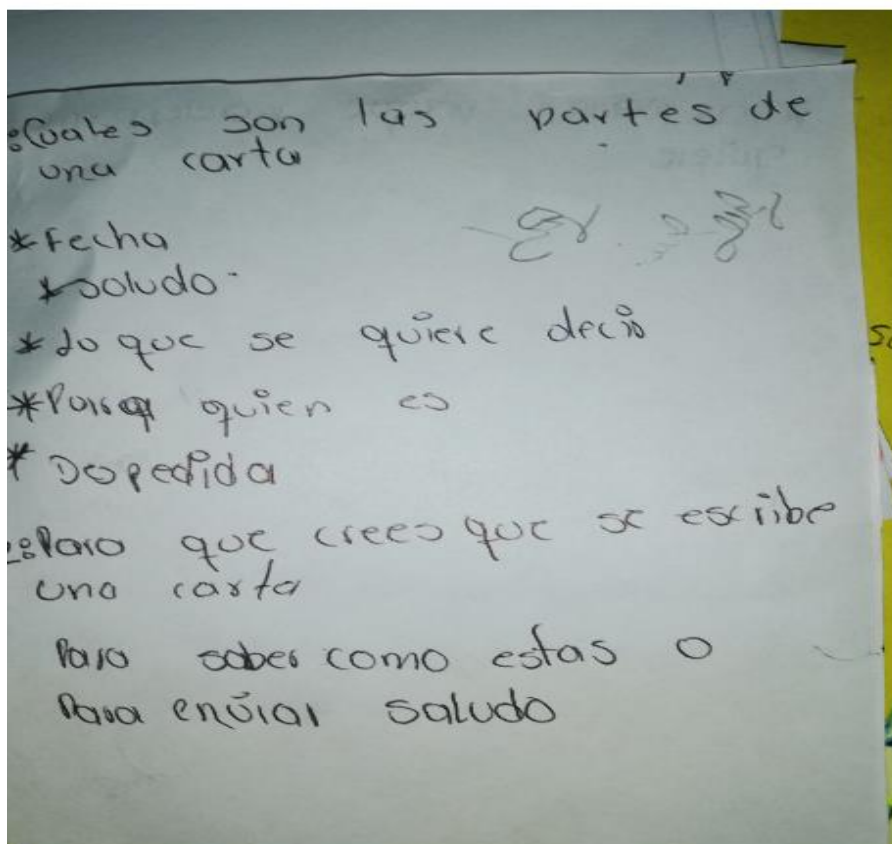 :Cuales son las partes de
una carta
*Fecha
*Soludo.
*Lo que se quiere decir
*Para quien es
*Dospedida
2:Para que crees que se escribe
una carta
Para saber como estas o
Para enviar saludo